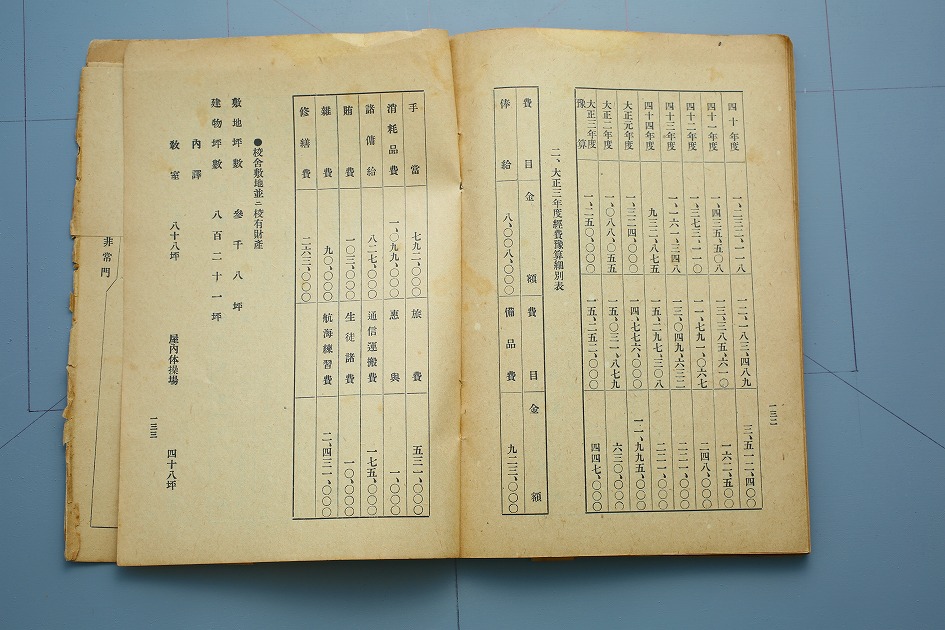 四十年度 一、二三二、一一八 一二、一八三、四八九 三、五一二、四〇〇
四十一年度 一、四三五、五〇八 一三、三八五、六一〇 一六二、五〇〇
四十二年度 一、三七三、一一〇 一一、七九一、〇六七 二四八、〇〇〇
四十三年度 一、一六一、三四八 一三、〇四九、六三二 二二一、〇〇〇
四十四年度 九三二、八七五 一五、二九七、三〇八 二二一、〇〇〇
大正元年度 一、三二四、〇〇〇 一四、七七六、〇〇〇 一一、九九五、〇〇〇
大正二年度 一、〇八八、〇五五 一五、〇三一、八七九 六三〇、〇〇〇
大正三年度豫算 一、二五〇、〇〇〇 一五、二五二、〇〇〇 四四七、〇〇〇
二、大正三年度經費豫算細別表
費目 金額 費目 金額
俸給 八、〇〇八、〇〇〇 備品費 九二三、〇〇〇
一三二
手當 七九二、〇〇〇 旅費 五三一、〇〇〇
消耗品費 一、〇九九、〇〇〇 惠與 一、〇〇〇
諸傭給 八二七、〇〇〇 通信運搬費 一七五、〇〇〇
賄費 一〇三、〇〇〇 生徒諸費 一〇、〇〇〇
雜費 九〇、〇〇〇 航海練習費 二、四三一、〇〇〇
修繕費 二六三、〇〇〇
●校舍敷地並ニ校有財產
敷地坪數 參千八坪
建物坪數 八百二十一坪
內譯
敎室 八十八坪 屋內体操場 四十八坪
一三三
非常門